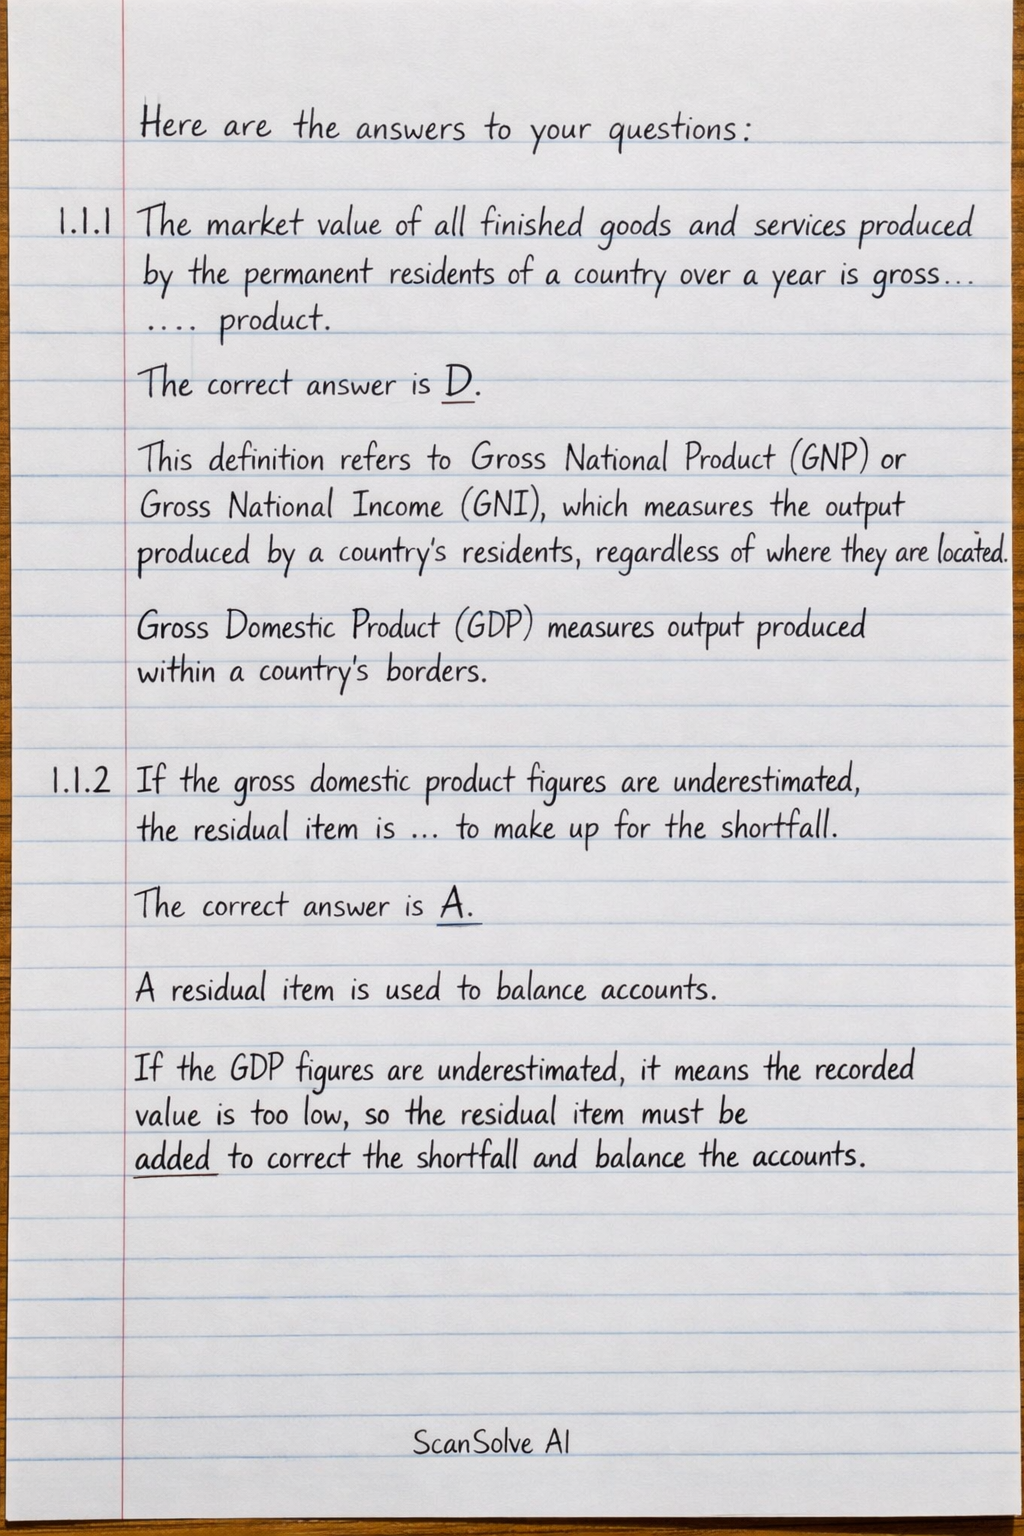 Here are the answers to your questions:
1.1.1 The market value of all finished goods and services produced
by the permanent residents of a country over a year is gross...
.... product.
The correct answer is D.
This definition refers to Gross National Product (GNP) or
Gross National Income (GNI), which measures the output
produced by a country's residents, regardless of where they are located.
Gross Domestic Product (GDP) measures output produced
within a country's borders.
1.1.2 If the gross domestic product figures are underestimated,
the residual item is ... to make up for the shortfall.
The correct answer is A.
A residual item is used to balance accounts.
If the GDP figures are underestimated, it means the recorded
value is too low, so the residual item must be
added to correct the shortfall and balance the accounts.
ScanSolve AI